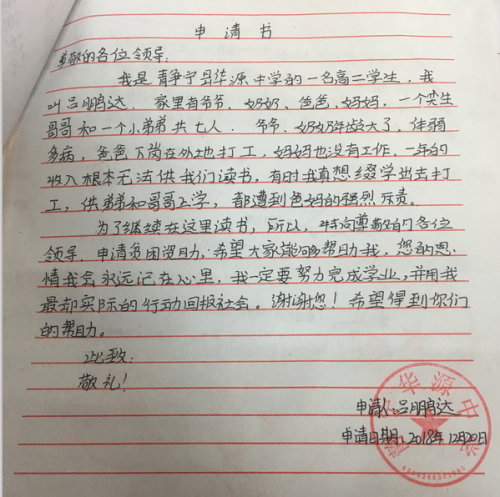 申请书
尊敬的各位领导:
我是静宁县华源中学的一名高二学生,我
叫吕鹏达,家里有爷爷、奶奶、爸爸、妈妈、一个孪生
哥哥和一个小弟弟共七人.爷爷、奶奶年龄大了,体弱
多病,爸爸下岗在外地打工,妈妈也没有工作,一年的
收入根本无法供我们读书,有时我真想缀学出去打
工,供弟弟和哥哥上学,都遭到爸妈的强烈斥责。
为了继续在这里读书,所以,特向尊敬的各位
领导,申请贫困资助.希望大家能够帮助我,您的恩
情我会永远记在心里,我一定要努力完成学业,并用我
最却实际的行动回报社会。谢谢您!希望得到你们
的帮助。
此致:
敬礼!
申请人:吕鹏达
申请日期:2018年12月20日
华源中学